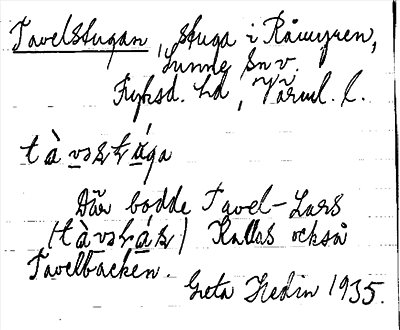 Tavelstugan, stuga i Råmyren,
Sunne sn v.
Fryksd. hd, Värml. l.
tàvəstá̱ga
Där bodde Tavel-Lars
Kallas också
Tavelbacken.
Greta Hedin 1935.